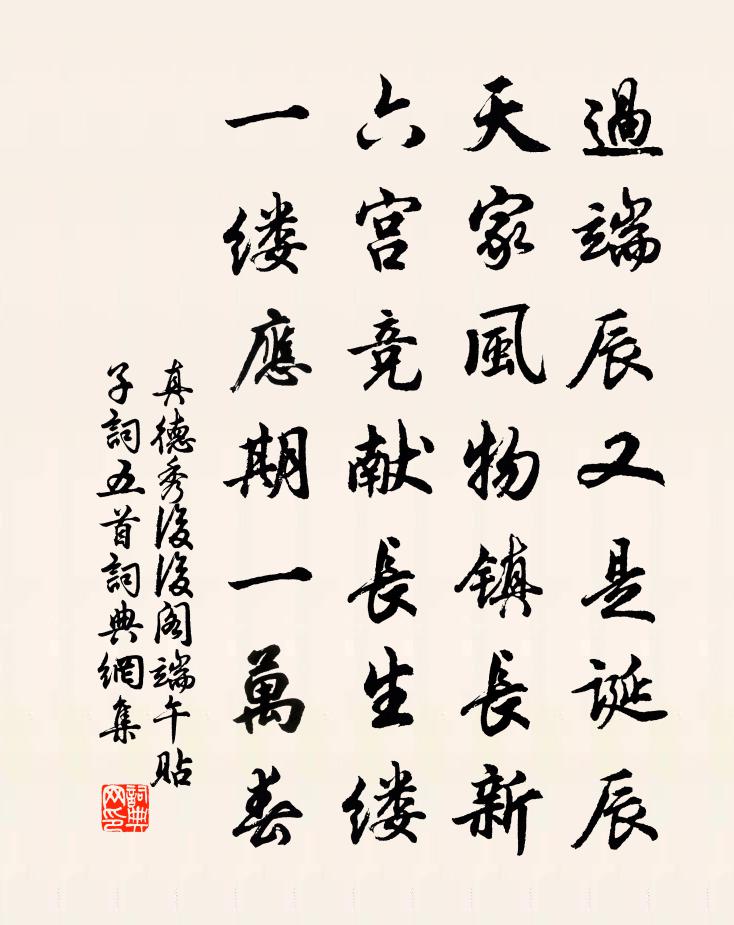 過端辰又是誕辰
天家風物镇長新
六宫竞献長生缕
一缕應期一萬春
真德秀後後阁端午貼
子詞五首詞典網集
詞典
网印